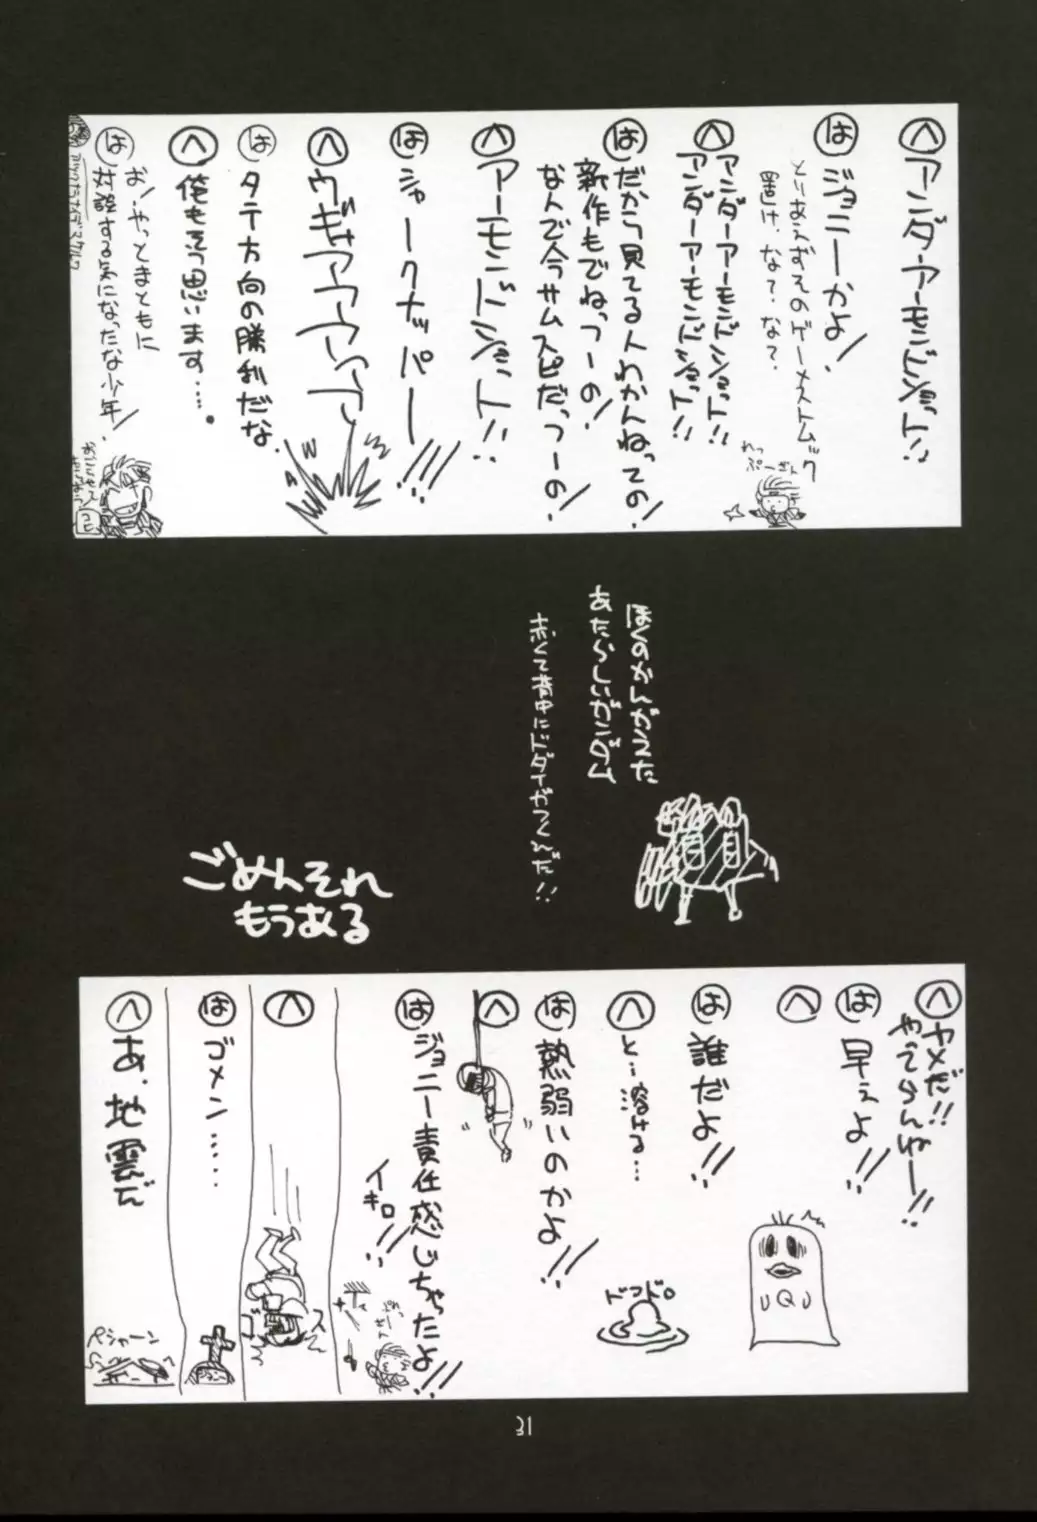 へ
アンダーアーモンドショット!!
は
ジョニーかよ!
とりあえずそのゲーメストムック
置け、な?、な?
へ
アンダーアーモンドショット!!
アンダーアーモンドショット!!
は
だから見てる人わかんねっての!
新作もでねっつーの!
なんで今サムスピだっつーの!
へ
アーモンドショット!!
は
シャークナッパー!!!
へ
ウギャアアアアア
は
タテ方向の勝利だな
へ
俺もそう思います….
は
お!やっとまともに
対談する気になったな少年!
ぼくのかんがえた
あたらしいガンダム
赤くて背中にドダイがつくんだ!!
ごめんそれ
もうある
へ
ヤメだ!!
やってらんねー!!
は
早ぇよ!!
へ
は
誰だよ!!
へ
と…溶ける…
ドロドロ
は
熱弱いのかよ!!
へ
は
ジョニー責任感じちゃったよ!!
イキロ!!
へ
は
ゴメン……
へ
あ、地震だ
ペシャーン
31